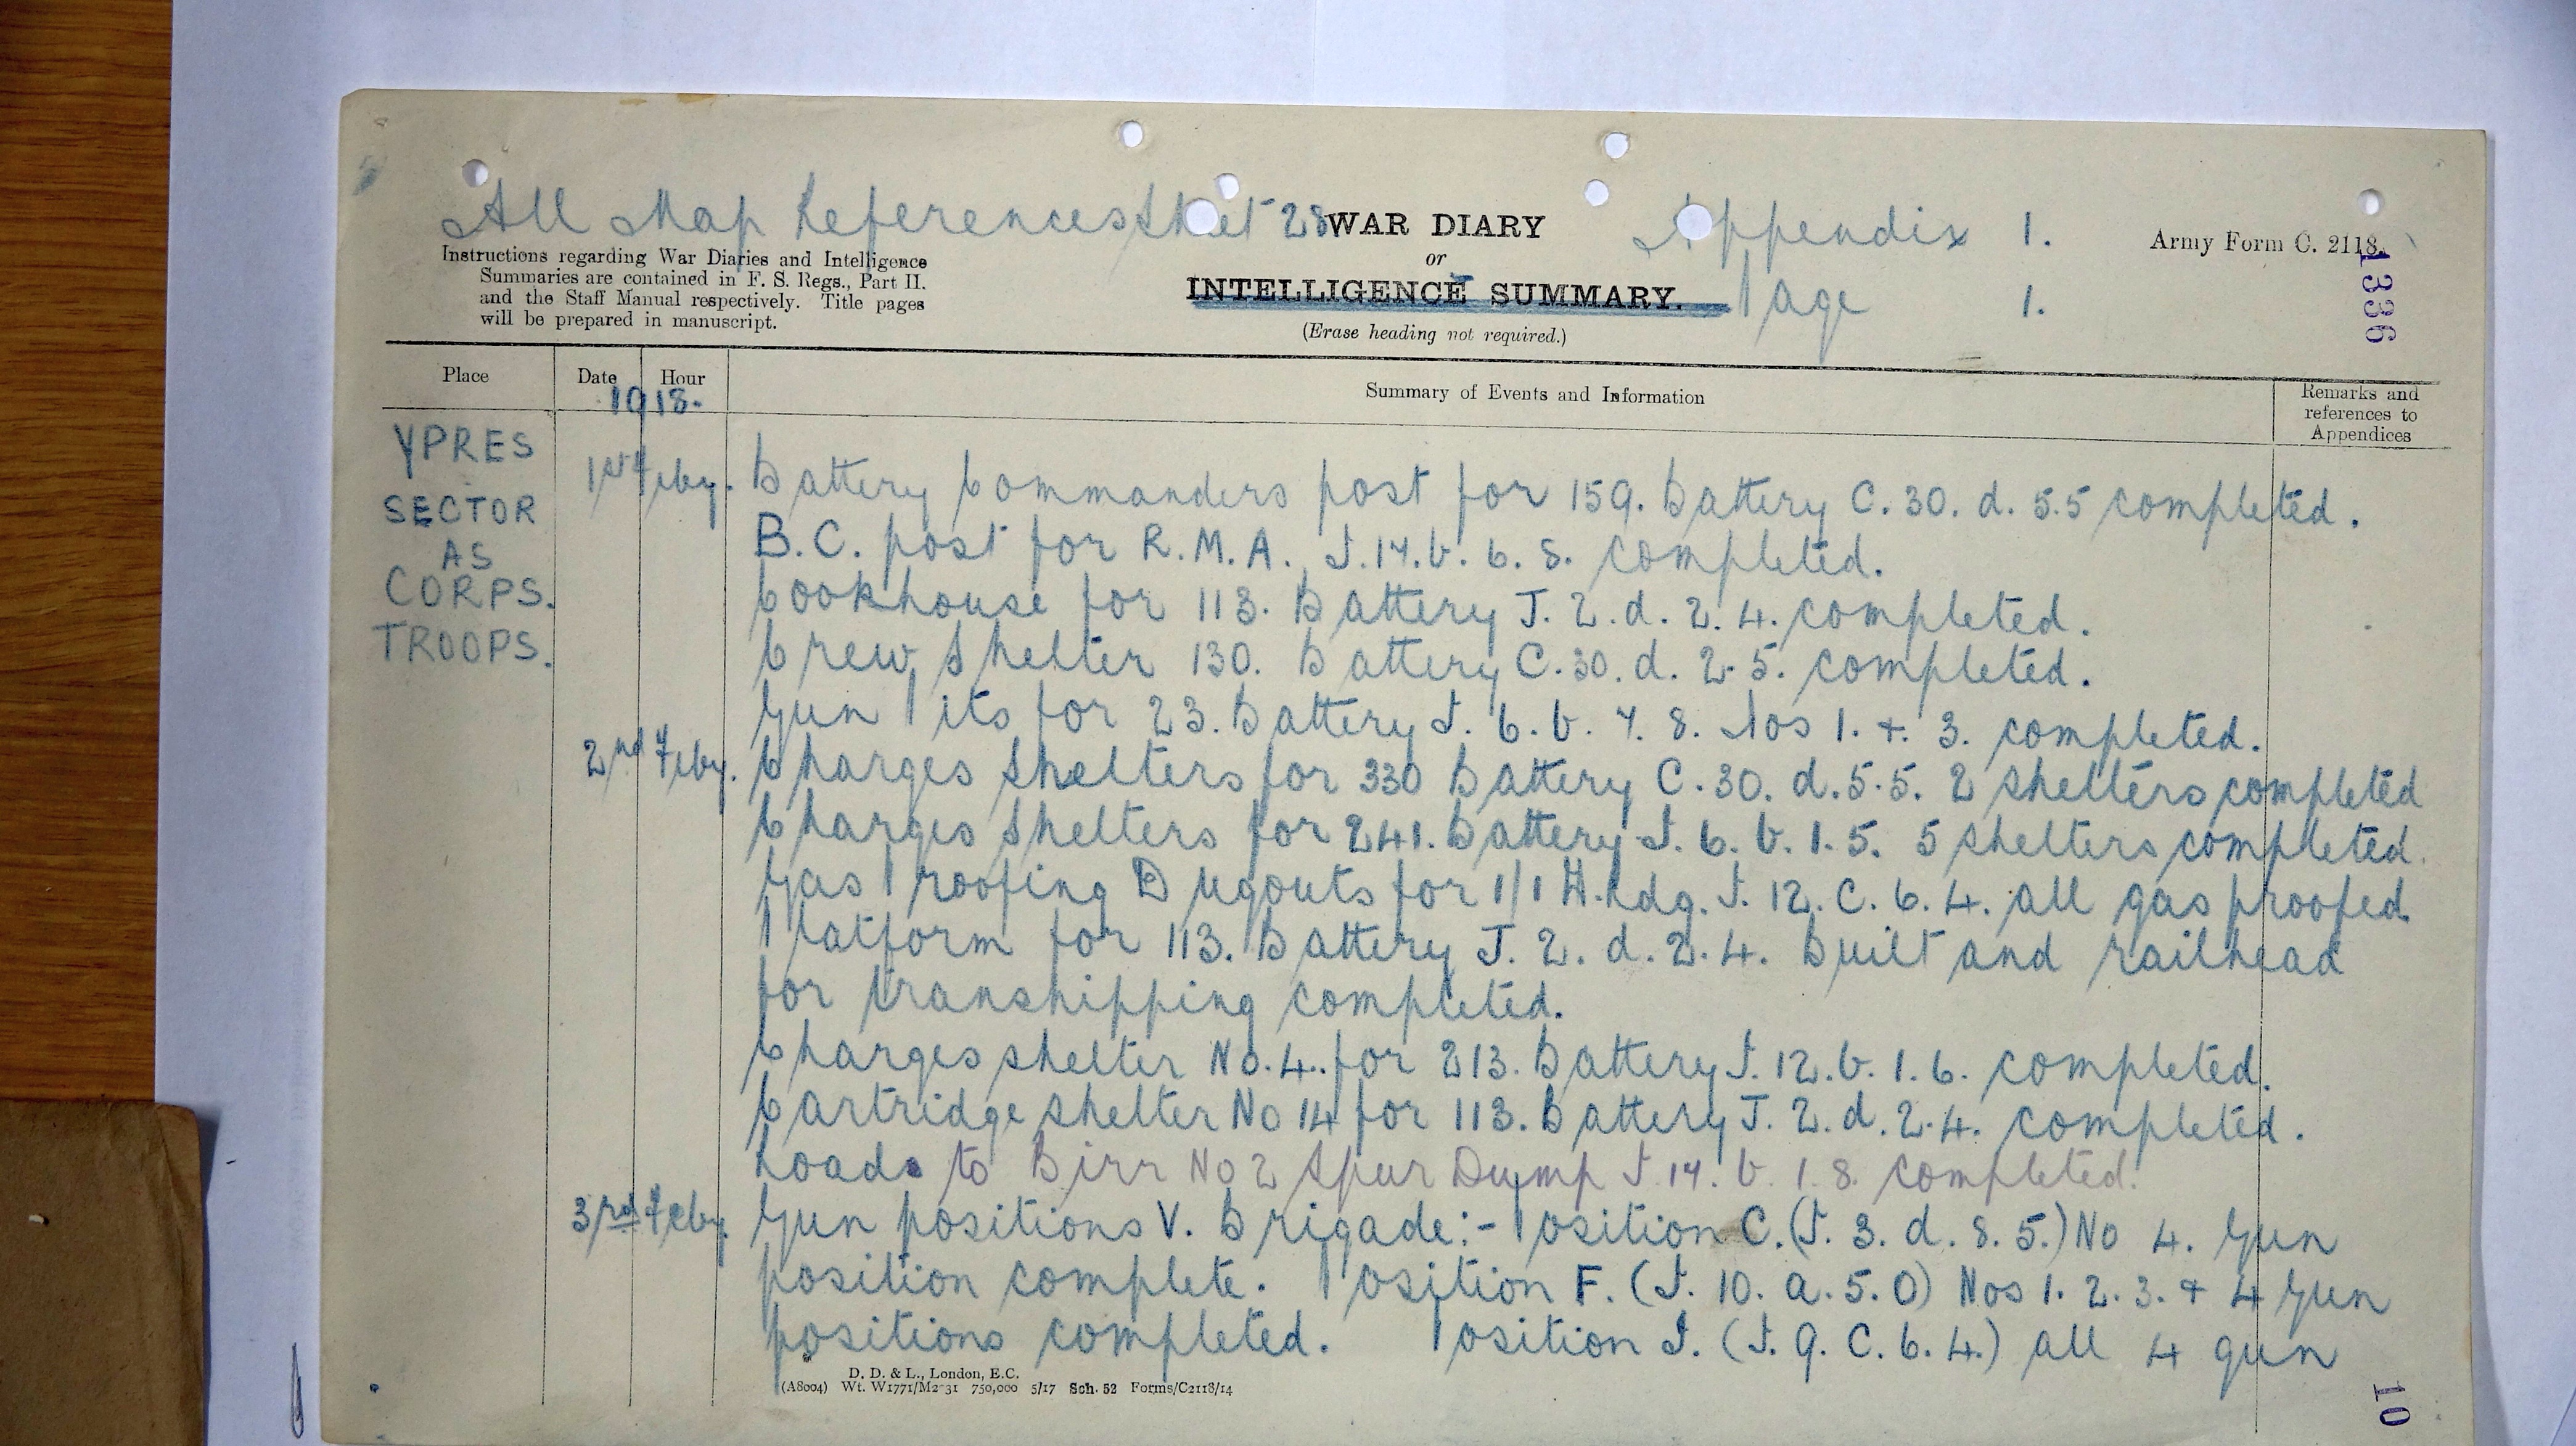 All Map References Sheet 28
WAR DIARY
or
INTELLIGENCE SUMMARY.
(Erase heading not required.)
Appendix 1.
Page 1.
Army Form C. 2118.
1336
Instructions regarding War Diaries and Intelligence
Summaries are contained in F. S. Regs., Part II.
and the Staff Manual respectively. Title pages
will be prepared in manuscript.
Place Date Hour Summary of Events and Information Remarks and references to Appendices
1918.
YPRES
SECTOR
AS
CORPS.
TROOPS.
1st Feby. Battery Commanders post for 159. Battery C. 30. d. 5.5 completed.
B.C. post for R.M.A. I.17.b. 6. 8. completed.
Cookhouse for 113. Battery J. 2. d. 2. 4. completed.
Crew Shelter 130. Battery C.30. d. 2.5. completed.
Gun Pits for 23. Battery I. 6. b. 7. 8. Nos 1. + 3. completed.
2nd Feby. Charges Shelters for 330 Battery C.30. d.5.5. 2 shelters completed
Charges Shelters for 241. Battery I. 6. b. 1. 5. 5 shelters completed.
Gas Proofing Dugouts for 1/1 H.Bdg. I. 12. C. 6. 4. all gas proofed.
Platform for 113. Battery J. 2. d. 2. 4. built and railhead
for transhipping completed.
Charges shelter No. 4. for 213. Battery I. 12. b. 1. 6. completed.
Cartridge shelter No 14 for 113. Battery J. 2. d. 2.4. completed.
Roads to Birr No 2 Spur Dump I. 17. b. 1. 8. completed.
3rd Feby. Gun positions V. Brigade:- Position C. (I. 3. d. 8. 5.) No 4. Gun
position complete. Position F. (I. 10. a. 5. 0) Nos 1. 2. 3. + 4 Gun
positions completed. Position I. (I. 9. C. 6. 4.) all 4 gun
D. D. & L., London, E.C.
(A8004) Wt. W1771/M2 31 750,000 5/17 Sch. 52 Forms/C2118/14
10